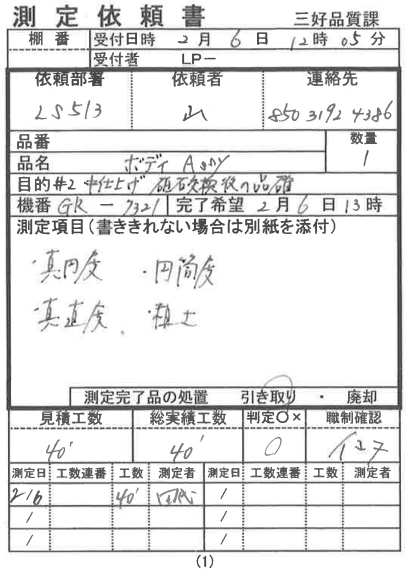 測定依頼書 三好品質課
棚番 受付日時 2月6日 12時05分
受付者 LP-
依頼部署 依頼者 連絡先
LS513 850 3192 4386
品番 数量
品名 ボディ Assy 1
目的 #2 中仕上げ 砥石交換後の品確
機番 GR-7321 完了希望 2月6日13時
測定項目(書ききれない場合は別紙を添付)
・真円度 ・円筒度
・真直度 ・粗さ
測定完了品の処置 引き取り ・ 廃却
見積工数 総実績工数 判定○× 職制確認
40' 40' ○
測定日 工数連番 工数 測定者 測定日 工数連番 工数 測定者
2/6 40' /
/ /
/ /
(1)